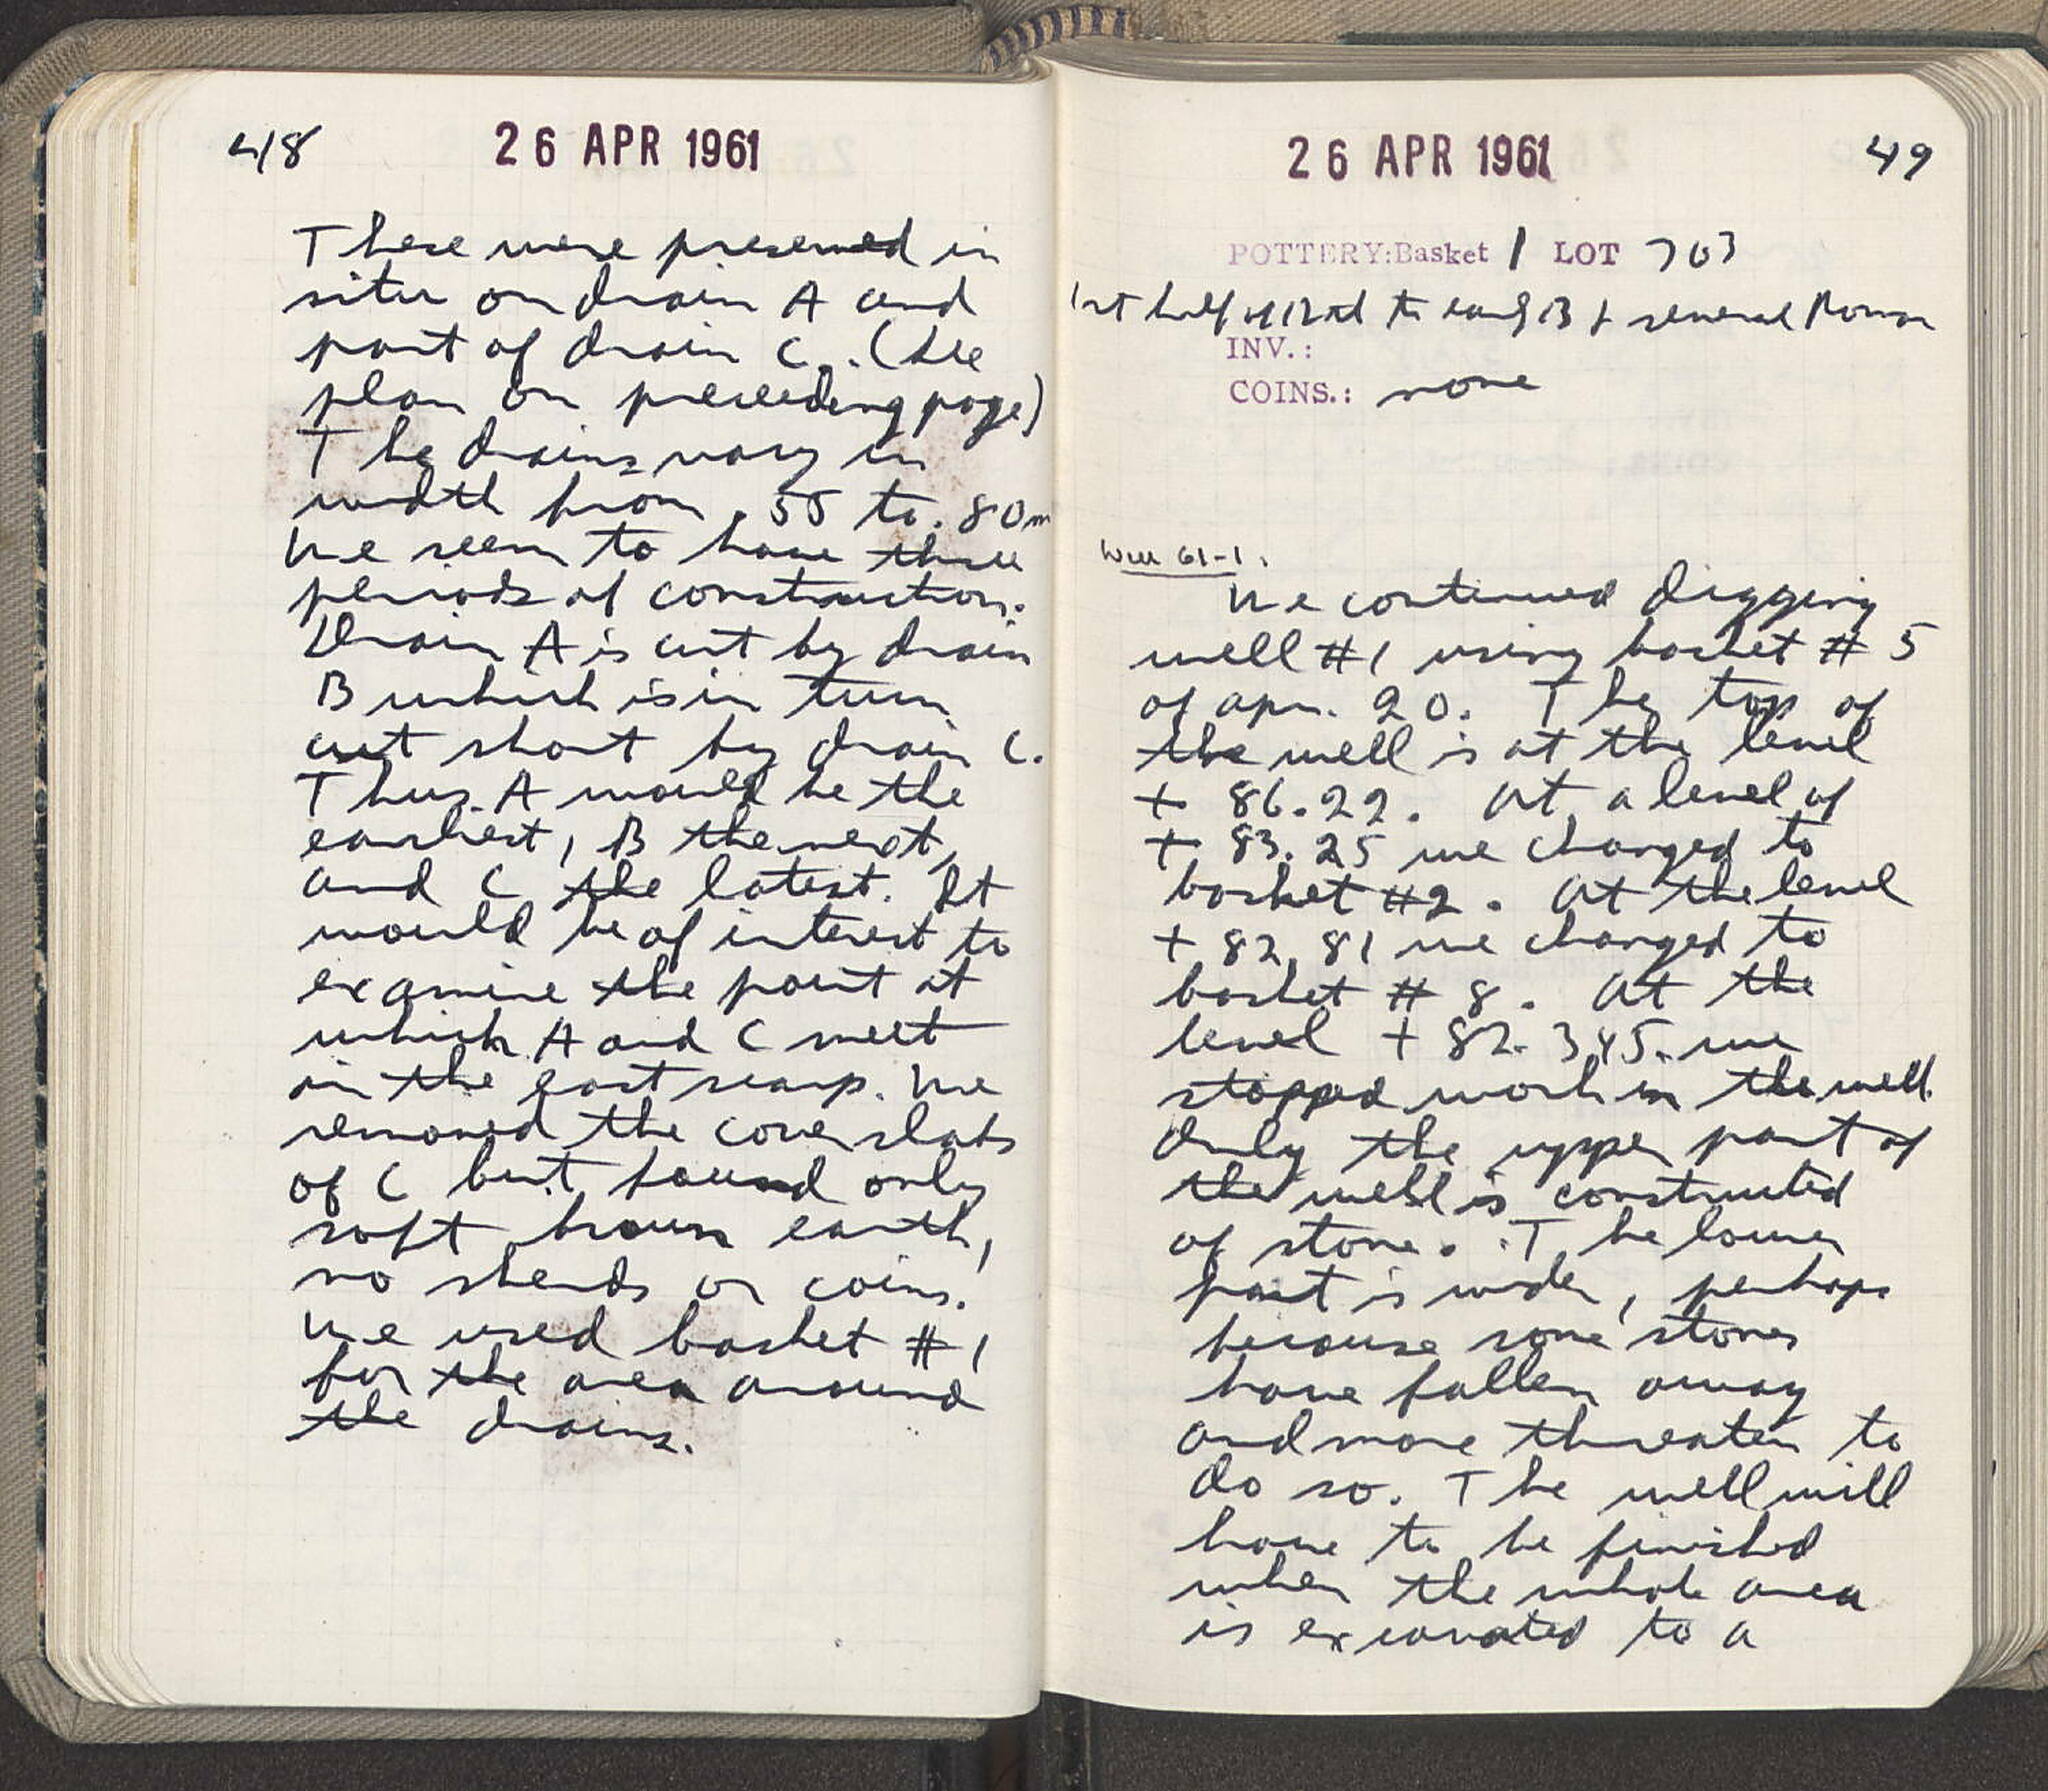 48
26 APR 1961
These were preserved in
situ on drain A and
part of drain C. (See
plan on preceeding page)
The drains vary in
width from .55 to .80m
We seem to have three
periods of construction.
Drain A is cut by drain
B which is in turn
cut short by drain C.
Thus A would be the
earliest, B the next,
and C the latest. It
would be of interest to
examine the point at
which A and C meet
in the east scarp. We
removed the cover slabs
of C but found only
soft brown earth,
no sherds or coins.
We used basket #1
for the area around
the drains.
26 APR 1961
49
POTTERY: Basket 1 LOT 703
1st half of 12th to early 13 + several Roman
INV.:
COINS.: none
Well 61-1.
We continued digging
well #1 using basket #5
of apr. 20. The top of
the well is at the level
+ 86.22. At a level of
+ 83.25 we changed to
basket #2. At the level
+ 82.81 we changed to
basket #8. At the
level + 82.345. we
stopped work in the well.
Only the upper part of
the well is constructed
of stone. The lower
part is wider, perhaps
because some stones
have fallen away
and more threaten to
do so. The well will
have to be finished
when the whole area
is excavated to a